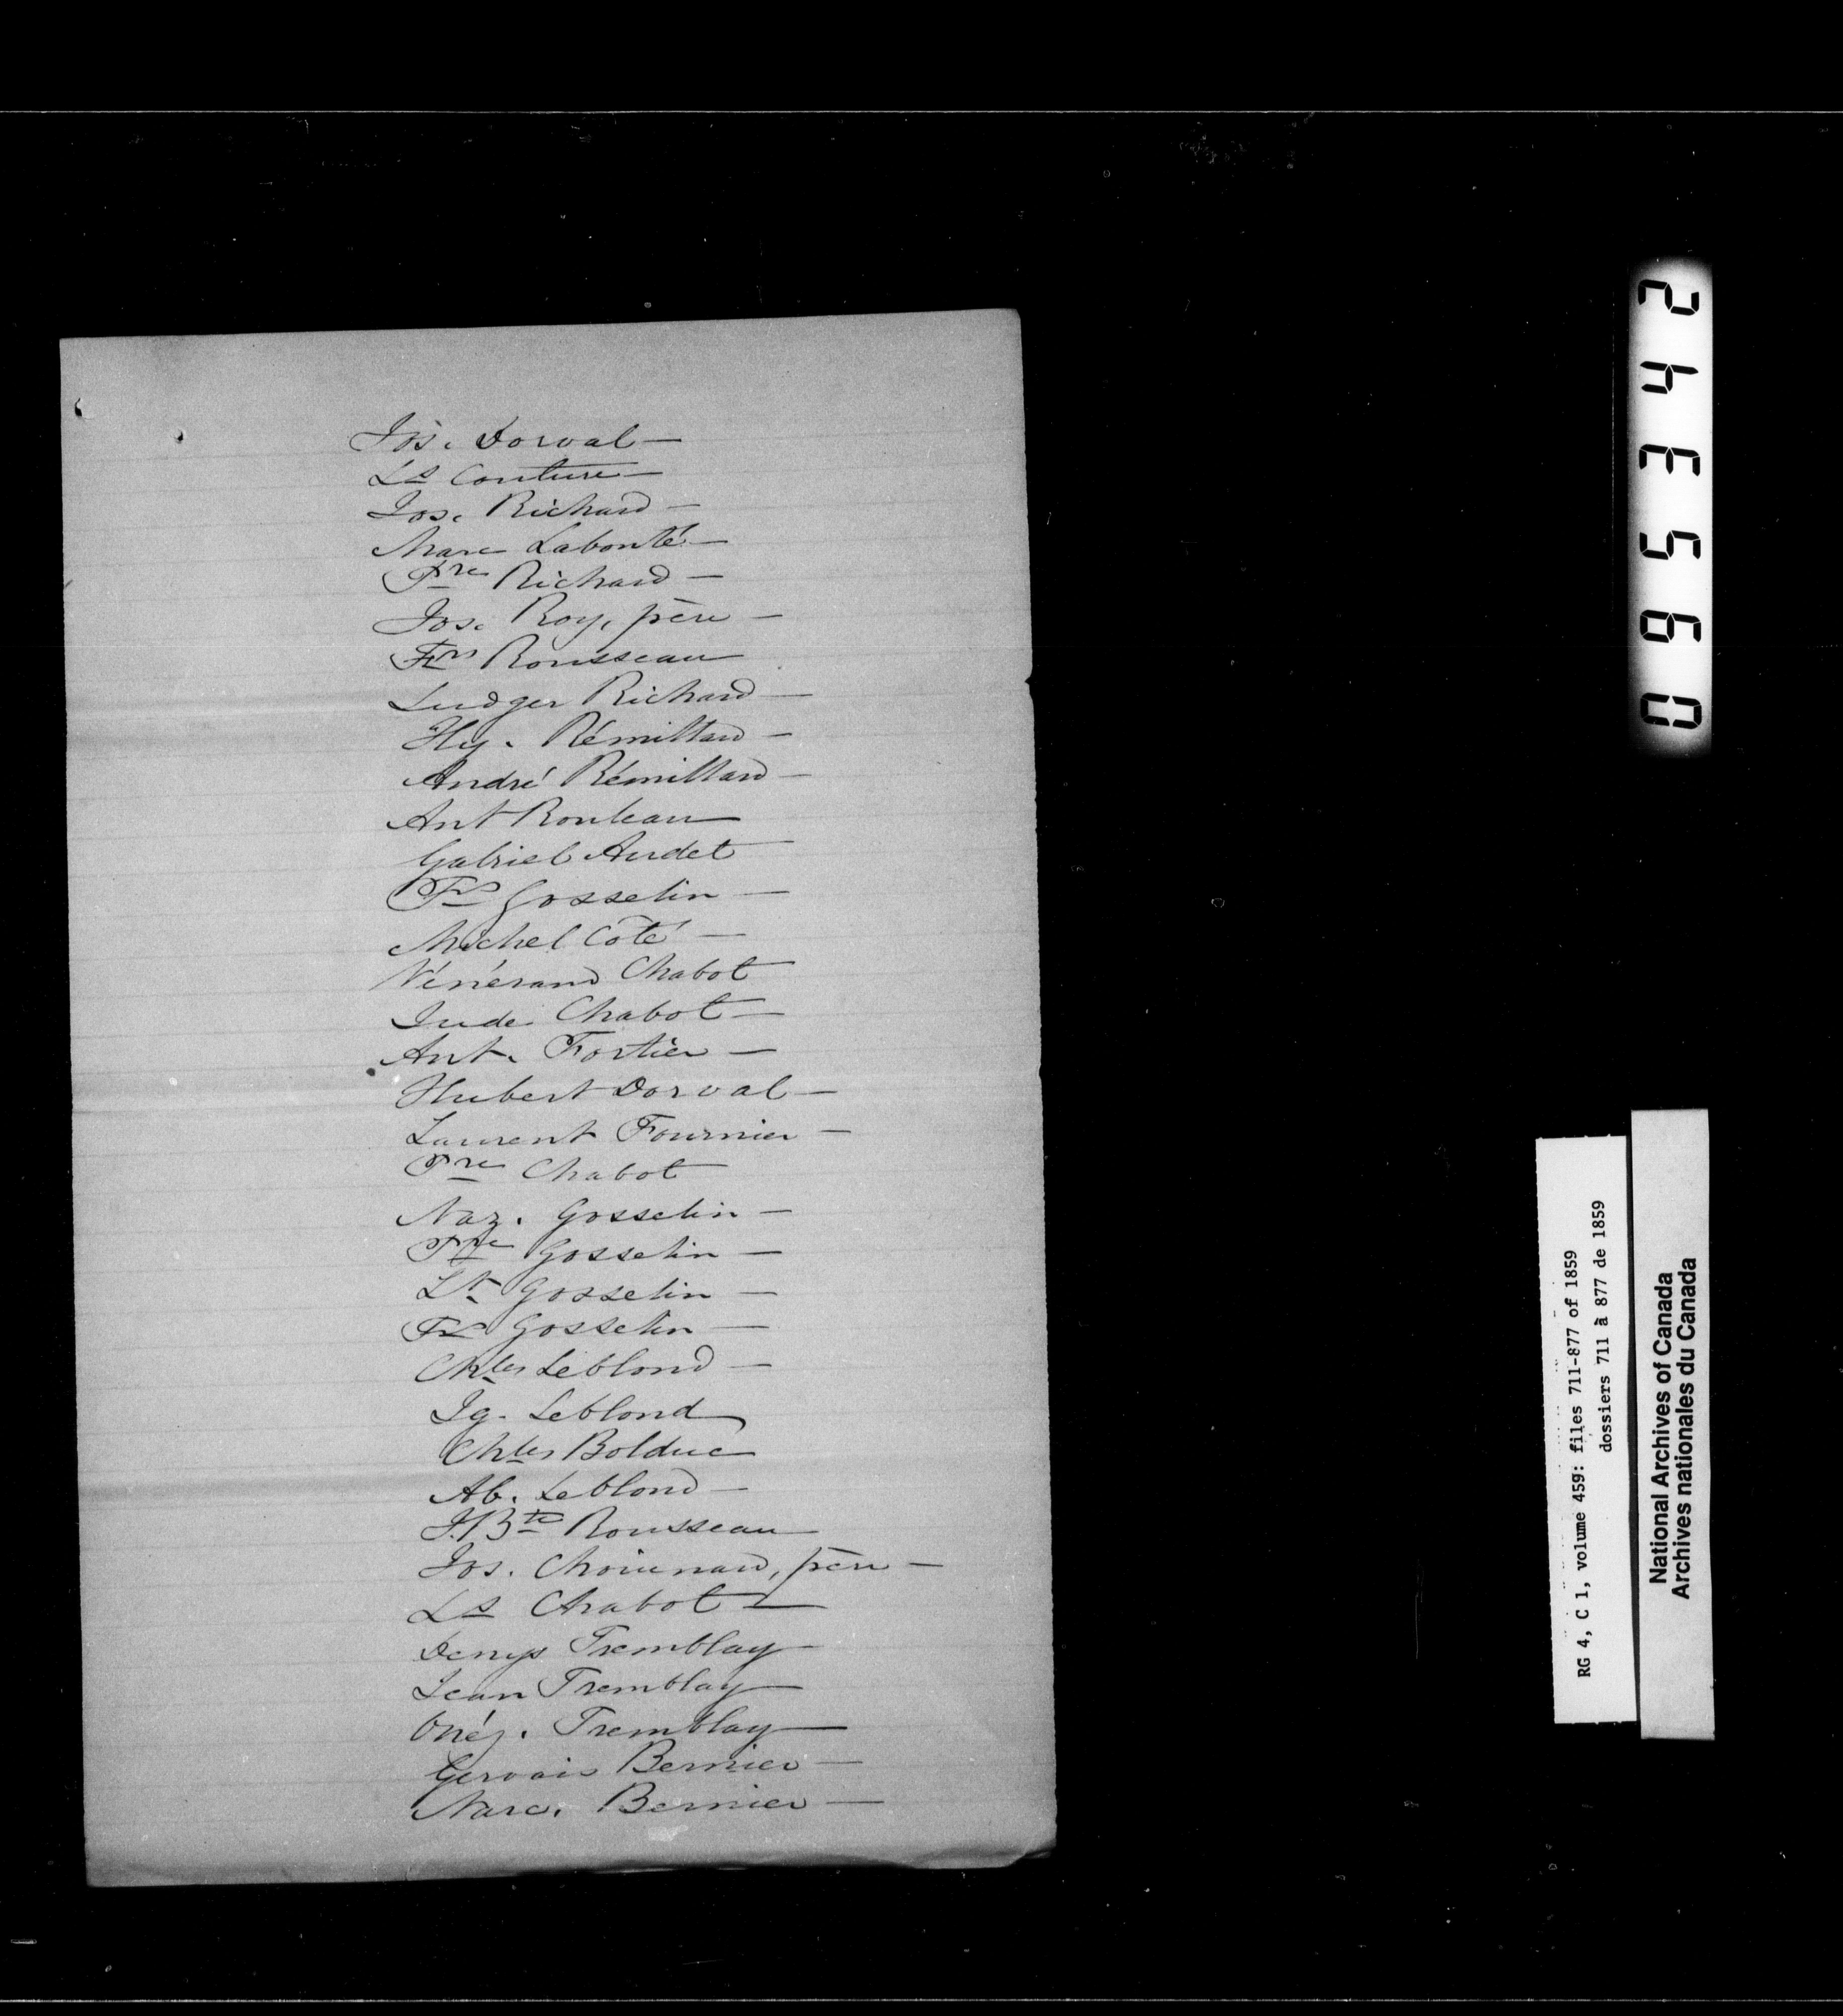 Jos. Dorval —
Ls Couture —
Jos. Richard —
Marc Labonté —
Pre Richard —
Jos. Roy, père —
Frs Rousseau
Ludger Richard —
Hy. Rémillard —
André Rémillard —
Ant Rouleau
Gabriel Audet
Frs Gosselin —
Michel Côté —
Vénérand Chabot
Jude Chabot —
Ant. Fortier —
Hubert Dorval —
Laurent Fournier —
Pre Chabot
Naz. Gosselin —
Pre Gosselin —
Lt. Gosselin —
Frs Gosselin —
Chles Leblond —
Ig. Leblond
Chles Bolduc
Ab. Leblond —
J.Bte Rousseau
Jos. Chouinard, père —
Ls Chabot —
Denys Tremblay
Jean Tremblay
Onéz. Tremblay
Gervais Bernier —
Narc. Bernier —
065342
RG 4, C 1, volume 459: files 711-877 of 1859
dossiers 711 à 877 de 1859
National Archives of Canada
Archives nationales du Canada